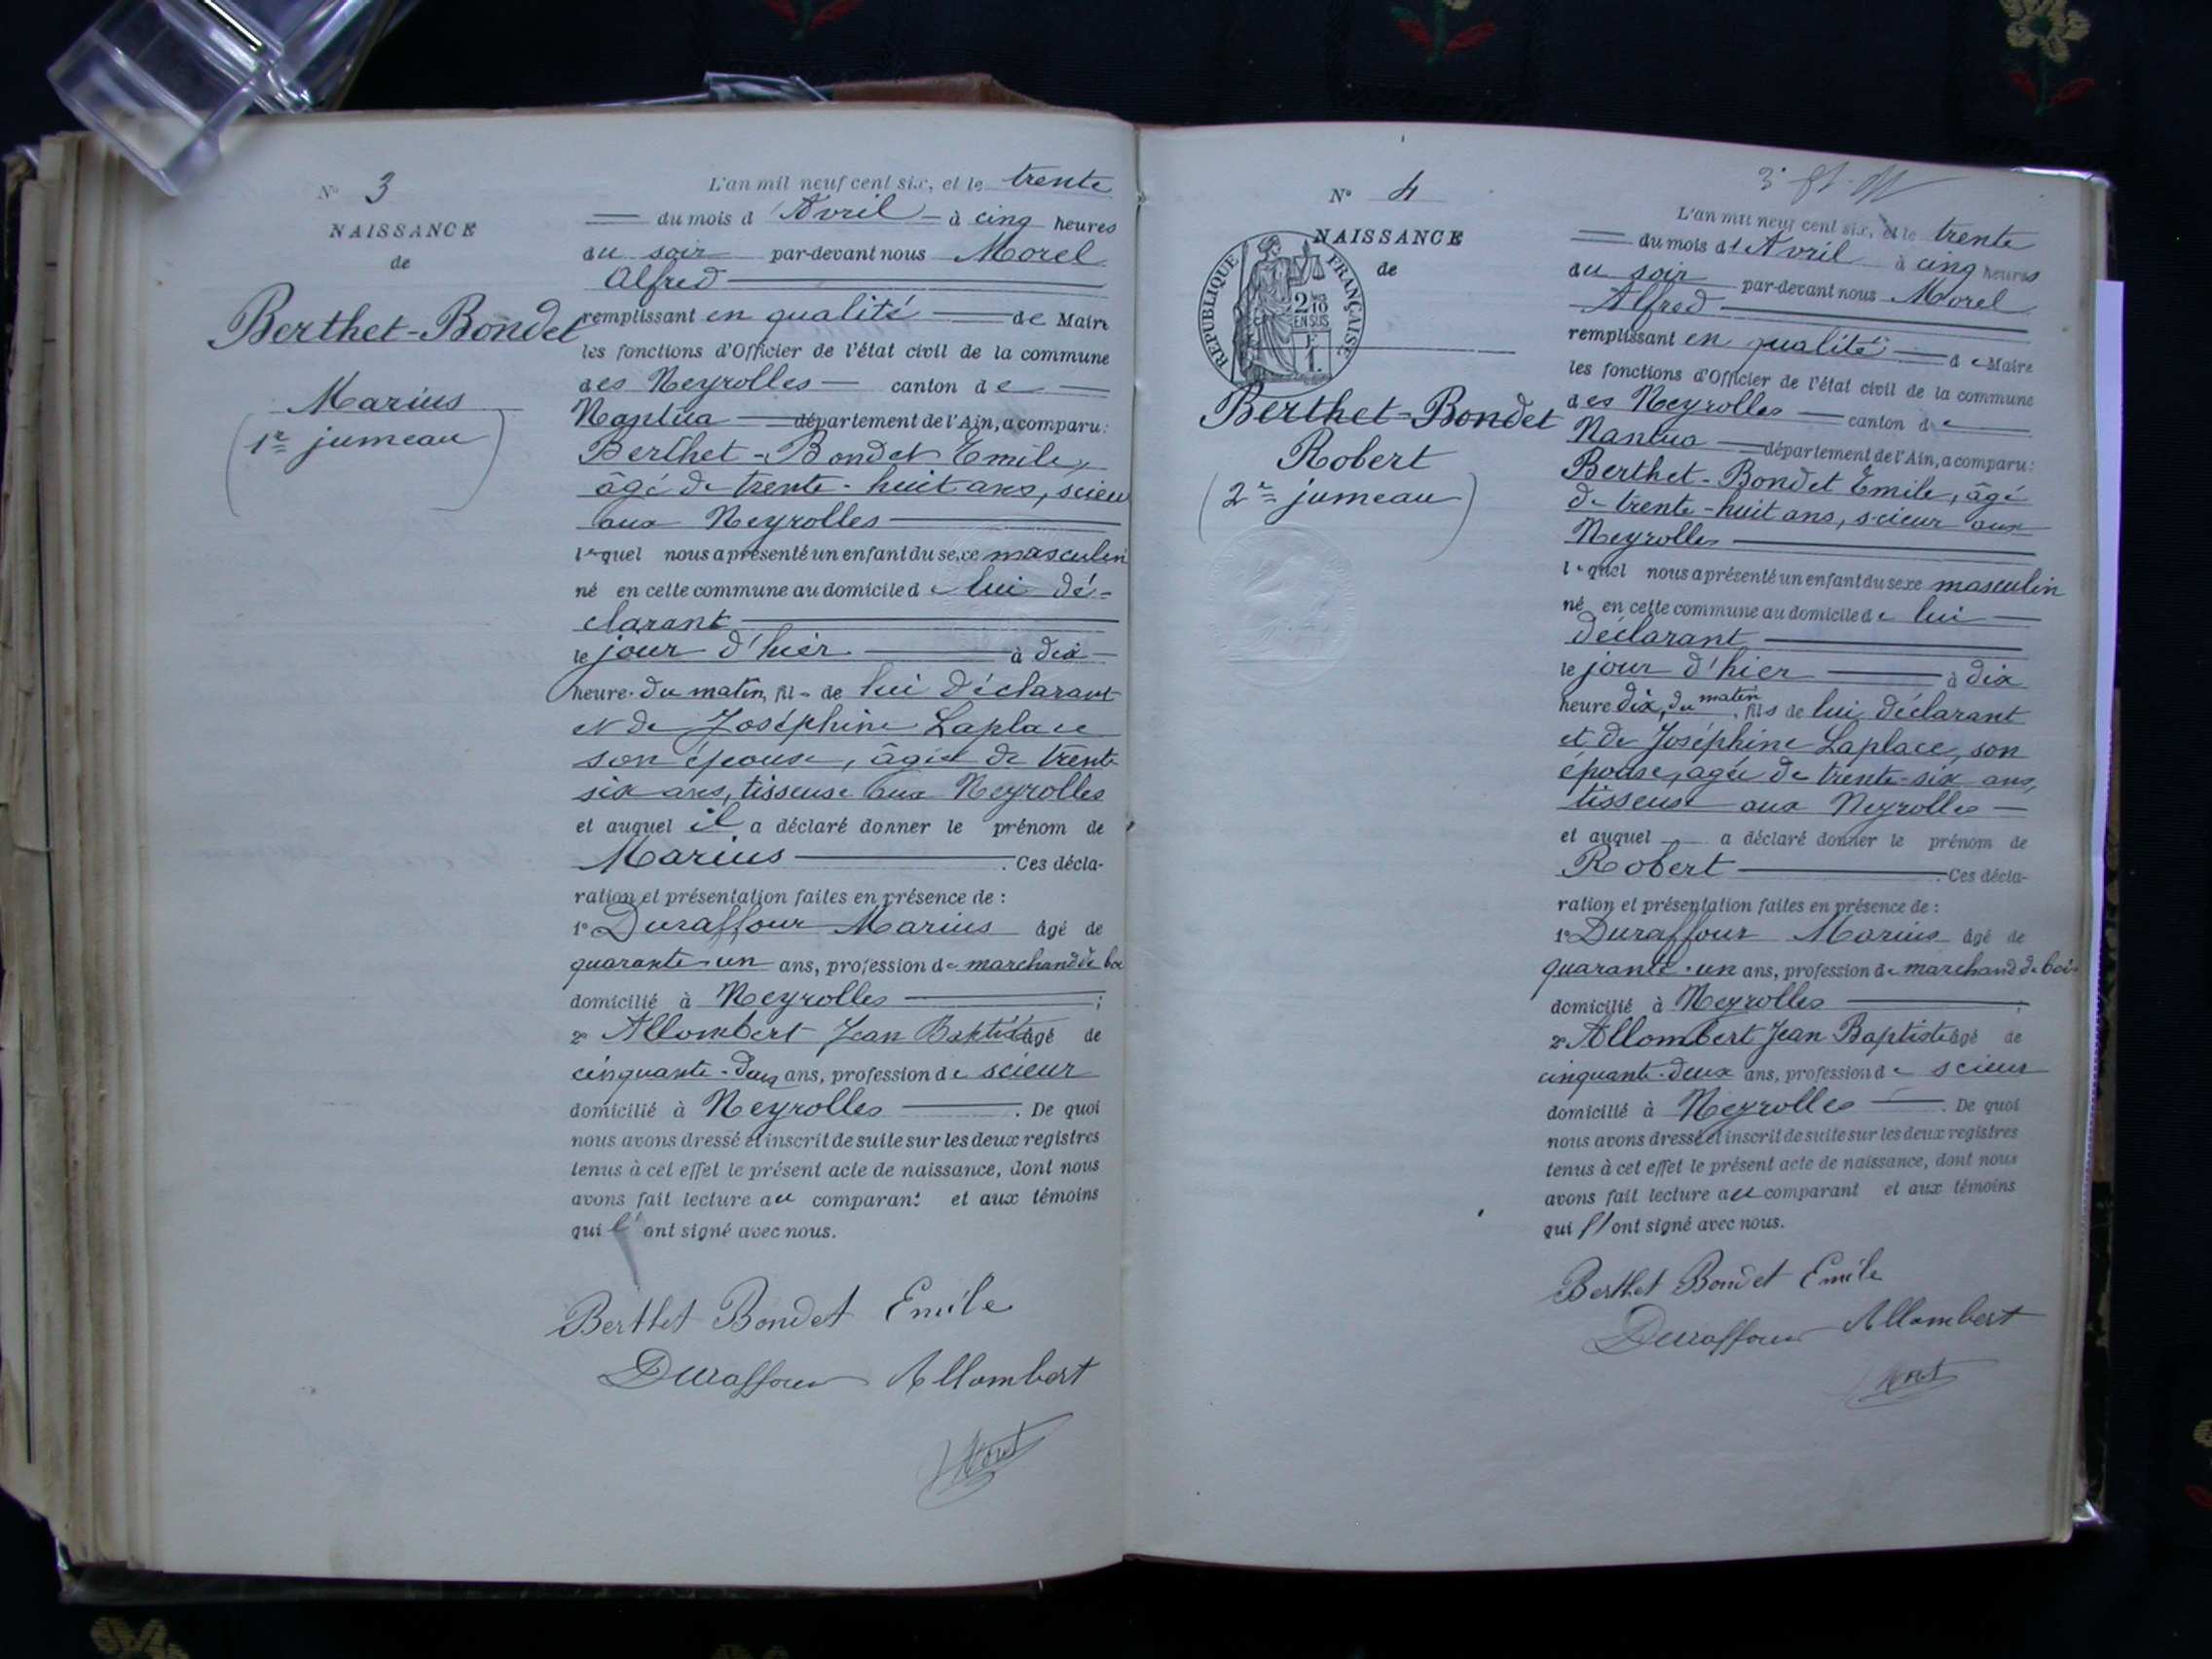 N° 3
NAISSANCE
de
Berthet-Bondet
Marius
(1er jumeau)
L'an mil neuf cent six, et le trente
du mois d'Avril à cinq heures
du soir par-devant nous Morel
Alfred
remplissant en qualité de Maire
les fonctions d'Officier de l'état civil de la commune
des Neyrolles canton de
Nantua département de l'Ain, a comparu:
Berthet-Bondet Emile,
âgé de trente-huit ans, scieur
aux Neyrolles
lequel nous a présenté un enfant du sexe masculin
né en cette commune au domicile de lui dé-
clarant
le jour d'hier à dix
heure du matin, fils de lui déclarant
et de Joséphine Laplace
son épouse, âgée de trente
six ans, tisseuse aux Neyrolles
et auquel il a déclaré donner le prénom de
Marius. Ces décla-
ration et présentation faites en présence de :
1° Duraffour Marius âgé de
quarante-un ans, profession de marchand de boi
domicilié à Neyrolles ;
2° Allombert Jean Baptiste âgé de
cinquante-deux ans, profession de scieur
domicilié à Neyrolles. De quoi
nous avons dressé et inscrit de suite sur les deux registres
tenus à cet effet le présent acte de naissance, dont nous
avons fait lecture au comparant et aux témoins
qui l'ont signé avec nous.
Berthet Bondet Emile
Duraffour Allombert
Morel
N° 4
NAISSANCE
de
REPUBLIQUE FRANÇAISE
2/10
EN SUS
F
1.
Berthet-Bondet
Robert
(2e jumeau)
L'an mil neuf cent six, et le trente
du mois d'Avril à cinq heures
du soir par-devant nous Morel
Alfred
remplissant en qualité de Maire
les fonctions d'Officier de l'état civil de la commune
des Neyrolles canton de
Nantua département de l'Ain, a comparu:
Berthet-Bondet Emile, âgé
de trente-huit ans, scieur aux
Neyrolles
lequel nous a présenté un enfant du sexe masculin
né en cette commune au domicile de lui
déclarant
le jour d'hier à dix
heure dix, du matin, fils de lui déclarant
et de Joséphine Laplace, son
épouse, agée de trente-six ans,
tisseuse aux Neyrolles
et auquel a déclaré donner le prénom de
Robert. Ces décla-
ration et présentation faites en présence de :
1° Duraffour Marius âgé de
quarante-un ans, profession de marchand de bois
domicilié à Neyrolles ;
2° Allombert Jean Baptiste âgé de
cinquante-deux ans, profession de scieur
domicilié à Neyrolles. De quoi
nous avons dressé et inscrit de suite sur les deux registres
tenus à cet effet le présent acte de naissance, dont nous
avons fait lecture au comparant et aux témoins
qui l'ont signé avec nous.
Berthet Bondet Emile
Duraffour Allombert
Morel